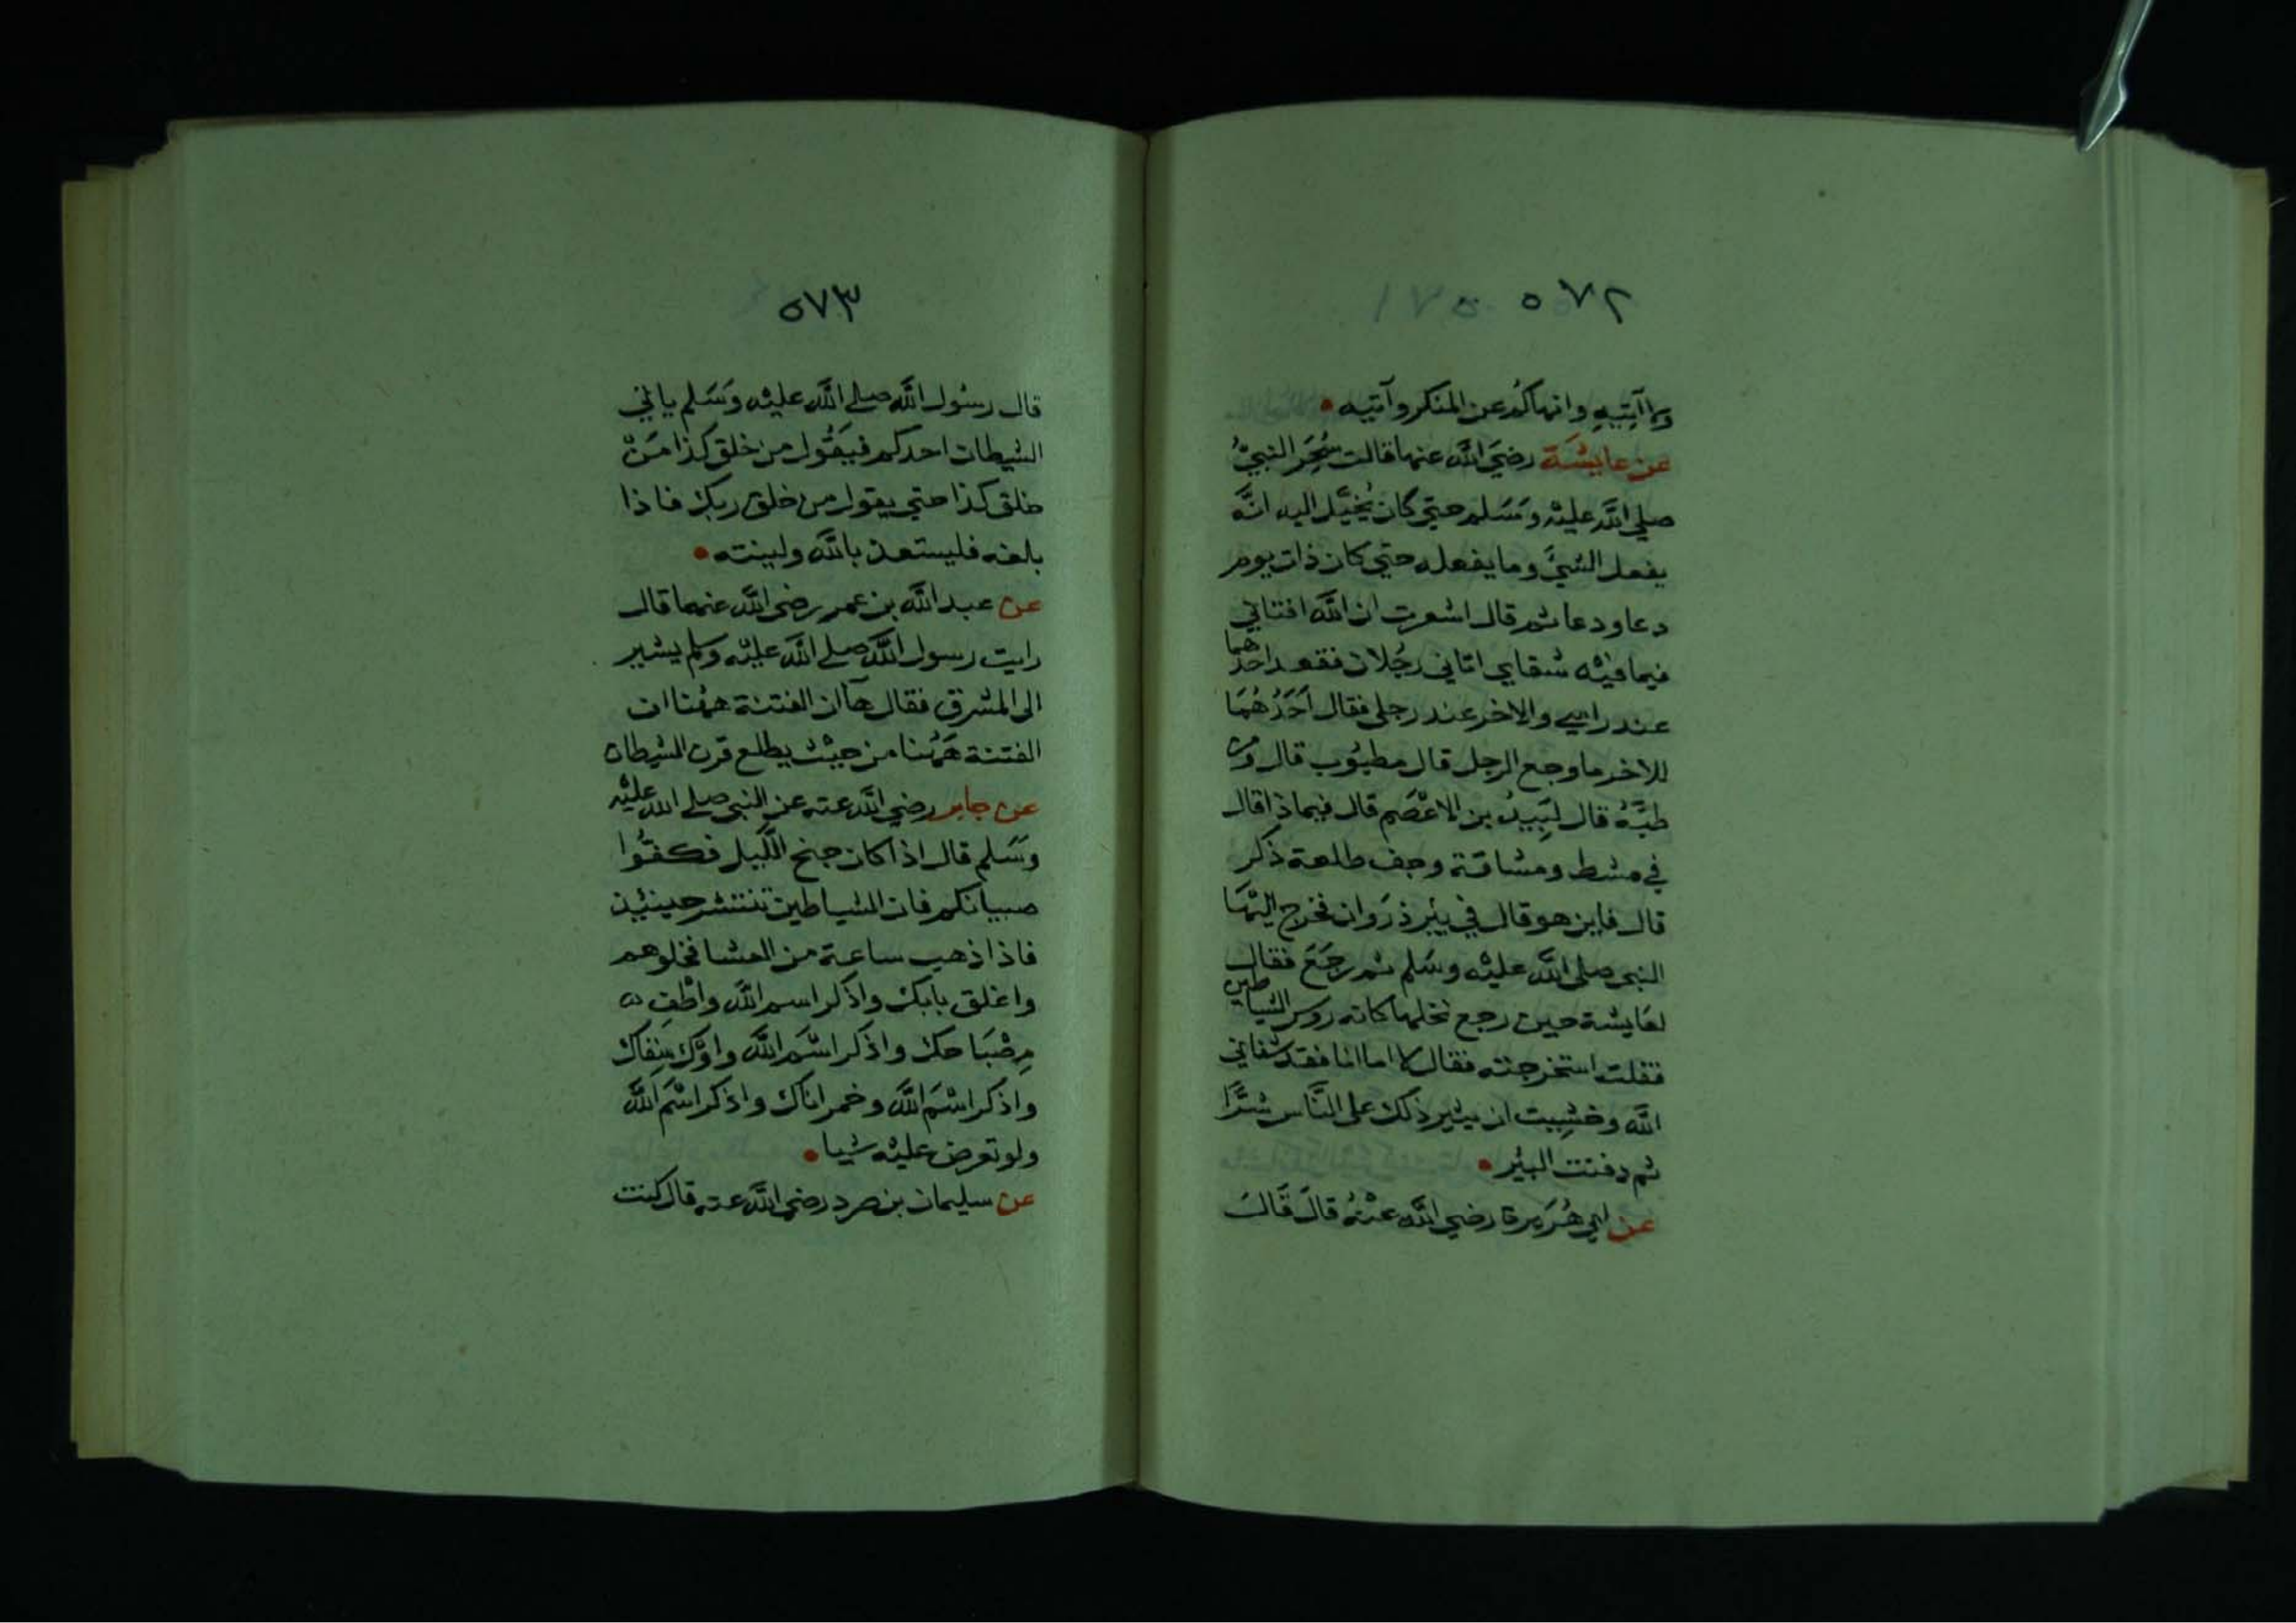 ٥٧٢
ولا آتِيهِ وانهاكم عن المنكر وآتيه
عن عايشَة رضيَ الله عنها قالت سُحِرَ النبيُّ
صلي الله عليه وسَلم حتي كان يُخيَّل اليه انَّه
يفعل الشيَّ وما يفعله حتي كان ذات يوم
دعا ودعا ثم قال اشعرت ان الله افتاني
فيما فيه شفايي اتاني رجُلان فقعد احدهما
عند راسي والاخر عند رجلي فقال اَحَدُهُمَا
للاخر ما وجع الرجل قال مطبُوب قال ومن
طبَّهُ قال لَبِيدُ بن الاعْصَم قال فيماذا قال
في مشط ومشاقة وجف طلعة ذكر
قال فاين هو قال في بير ذرَوان فخرج اليْهَا
النبي صلى الله عليه وسَلم ثم رجَعَ فقال
لعَايشة حين رجع نخلها كانه روس الشياطين
فقلت استخرجته فقال لا اما انا فقد شفاني
الله وخشِيت ان يثير ذلك على النَّاس شرًّا
ثم دفنت البئر
عن ابي هُرَيرة رضي الله عنْهُ قالَ قَالَ
٥٧٣
قال رسُول الله صلے الله عليْه وَسَلم ياتي
الشيطان احدكم فيقُول من خلق كذا مَنْ
خلق كذا حتي يقول من خلق ربك فاذا
بلغه فليستعذ بالله ولينته
عن عبد الله بن عمر رضي الله عنهما قال
رايت رسول الله صلے الله عليْه ولم يشير
الى المشرق فقال هآ ان الفتنة ههُنا ان
الفتنة هَهُنا من حيْث يطلع قرن الشيطان
عن جابر رضي الله عنه عن النبي صلے الله عليْه
وسَلم قال اذا كان جنح اللَّيل فكفُّوا
صبيانكم فان الشياطين تنتشر حينيْذ
فاذا ذهب ساعة من العشا فخلوهم
واغلق بابك واذكر اسم الله واطْفِ
مِصْبَاحك واذكر اسْمَ الله واوْك سِقاك
واذكر اسْمَ الله وخمر اناك واذكر اسْمَ الله
ولو تعرض عليْه شيا
عن سليمان بن صرد رضي الله عنه قال كنت